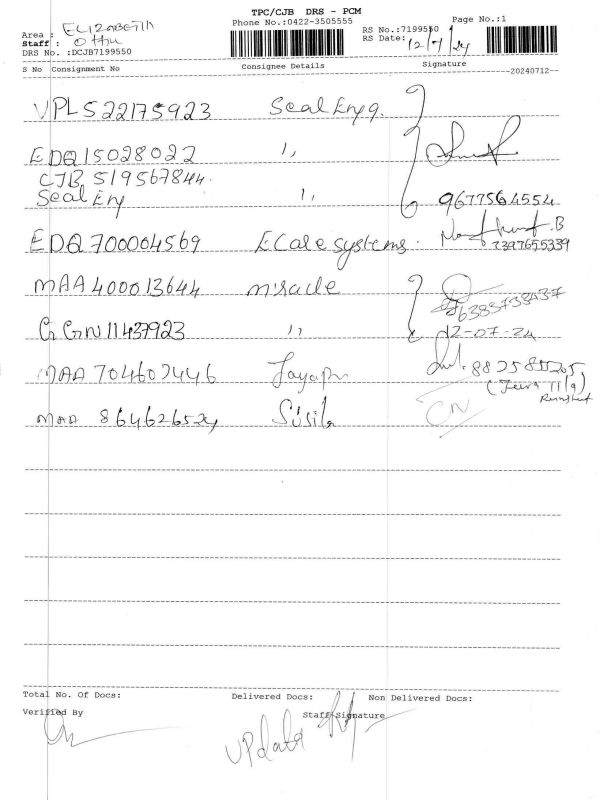 TPC/CJB DRS - PCM
Phone No.:0422-3505555
Page No.:1
Area : ELIZABETH
Staff :
DRS No. :DCJB7199550
RS No.:7199550
RS Date: 12/7/24
S No Consignment No Consignee Details Signature
20240712
VPL522175923 Seal Engg.
EDQ15028022 ",
CJB 519567844
Seal Eng ",
9677564554
EDQ700004569 ECale systems. B
7397655339
MAA400013644 miracle
6383738437
GGN11437923 ",
12-07-24
MAA 704602446
8825855205
MAA 864626524 Susila
CN
Total No. Of Docs: Delivered Docs: Non Delivered Docs:
Verified By Staff Signature
update